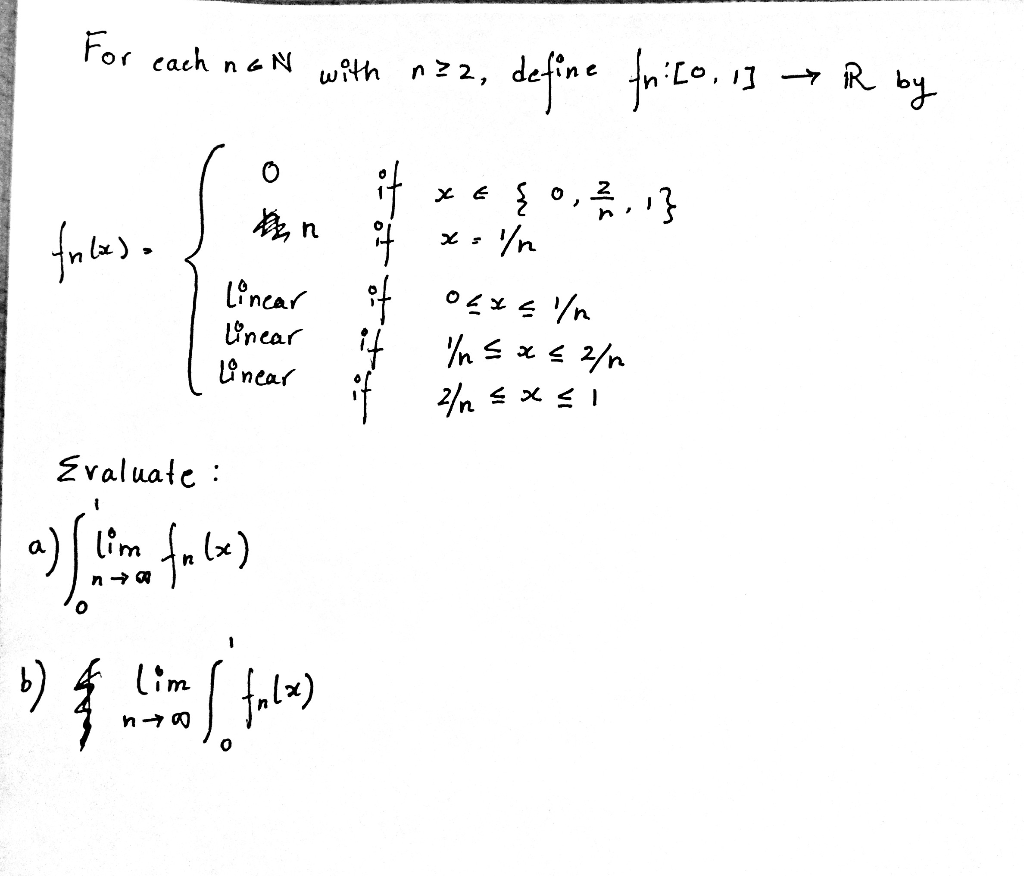 For each n ∈ ℕ with n ≥ 2, define fn: [0, 1] → ℝ by
fn(x) = { 0 if x ∈ { 0, 2/n, 1 }
n if x = 1/n
linear if 0 ≤ x ≤ 1/n
linear if 1/n ≤ x ≤ 2/n
linear if 2/n ≤ x ≤ 1
Evaluate :
a) ∫₀¹ lim n→∞ fn(x)
b) lim n→∞ ∫₀¹ fn(x)